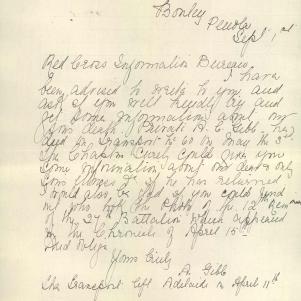 Bonley
Penola
Sept 1st
Red Cross Information Bureau
I have
been advised to write to you and
ask if you will kindly try and
get some information about our
sons death. Private A. E. Gibb. He
died on transport
on May the 3rd
The Chaplin could give you
some information about our dear only
sons illness if he has returned
I would also be glad if you could send
me
the Photo of the 12th
of the 27th Battalion which appeared
in the Chronicle of April 15th
and oblige
Yours Truly
A Gibb
The Transport left Adelaide on April 11th